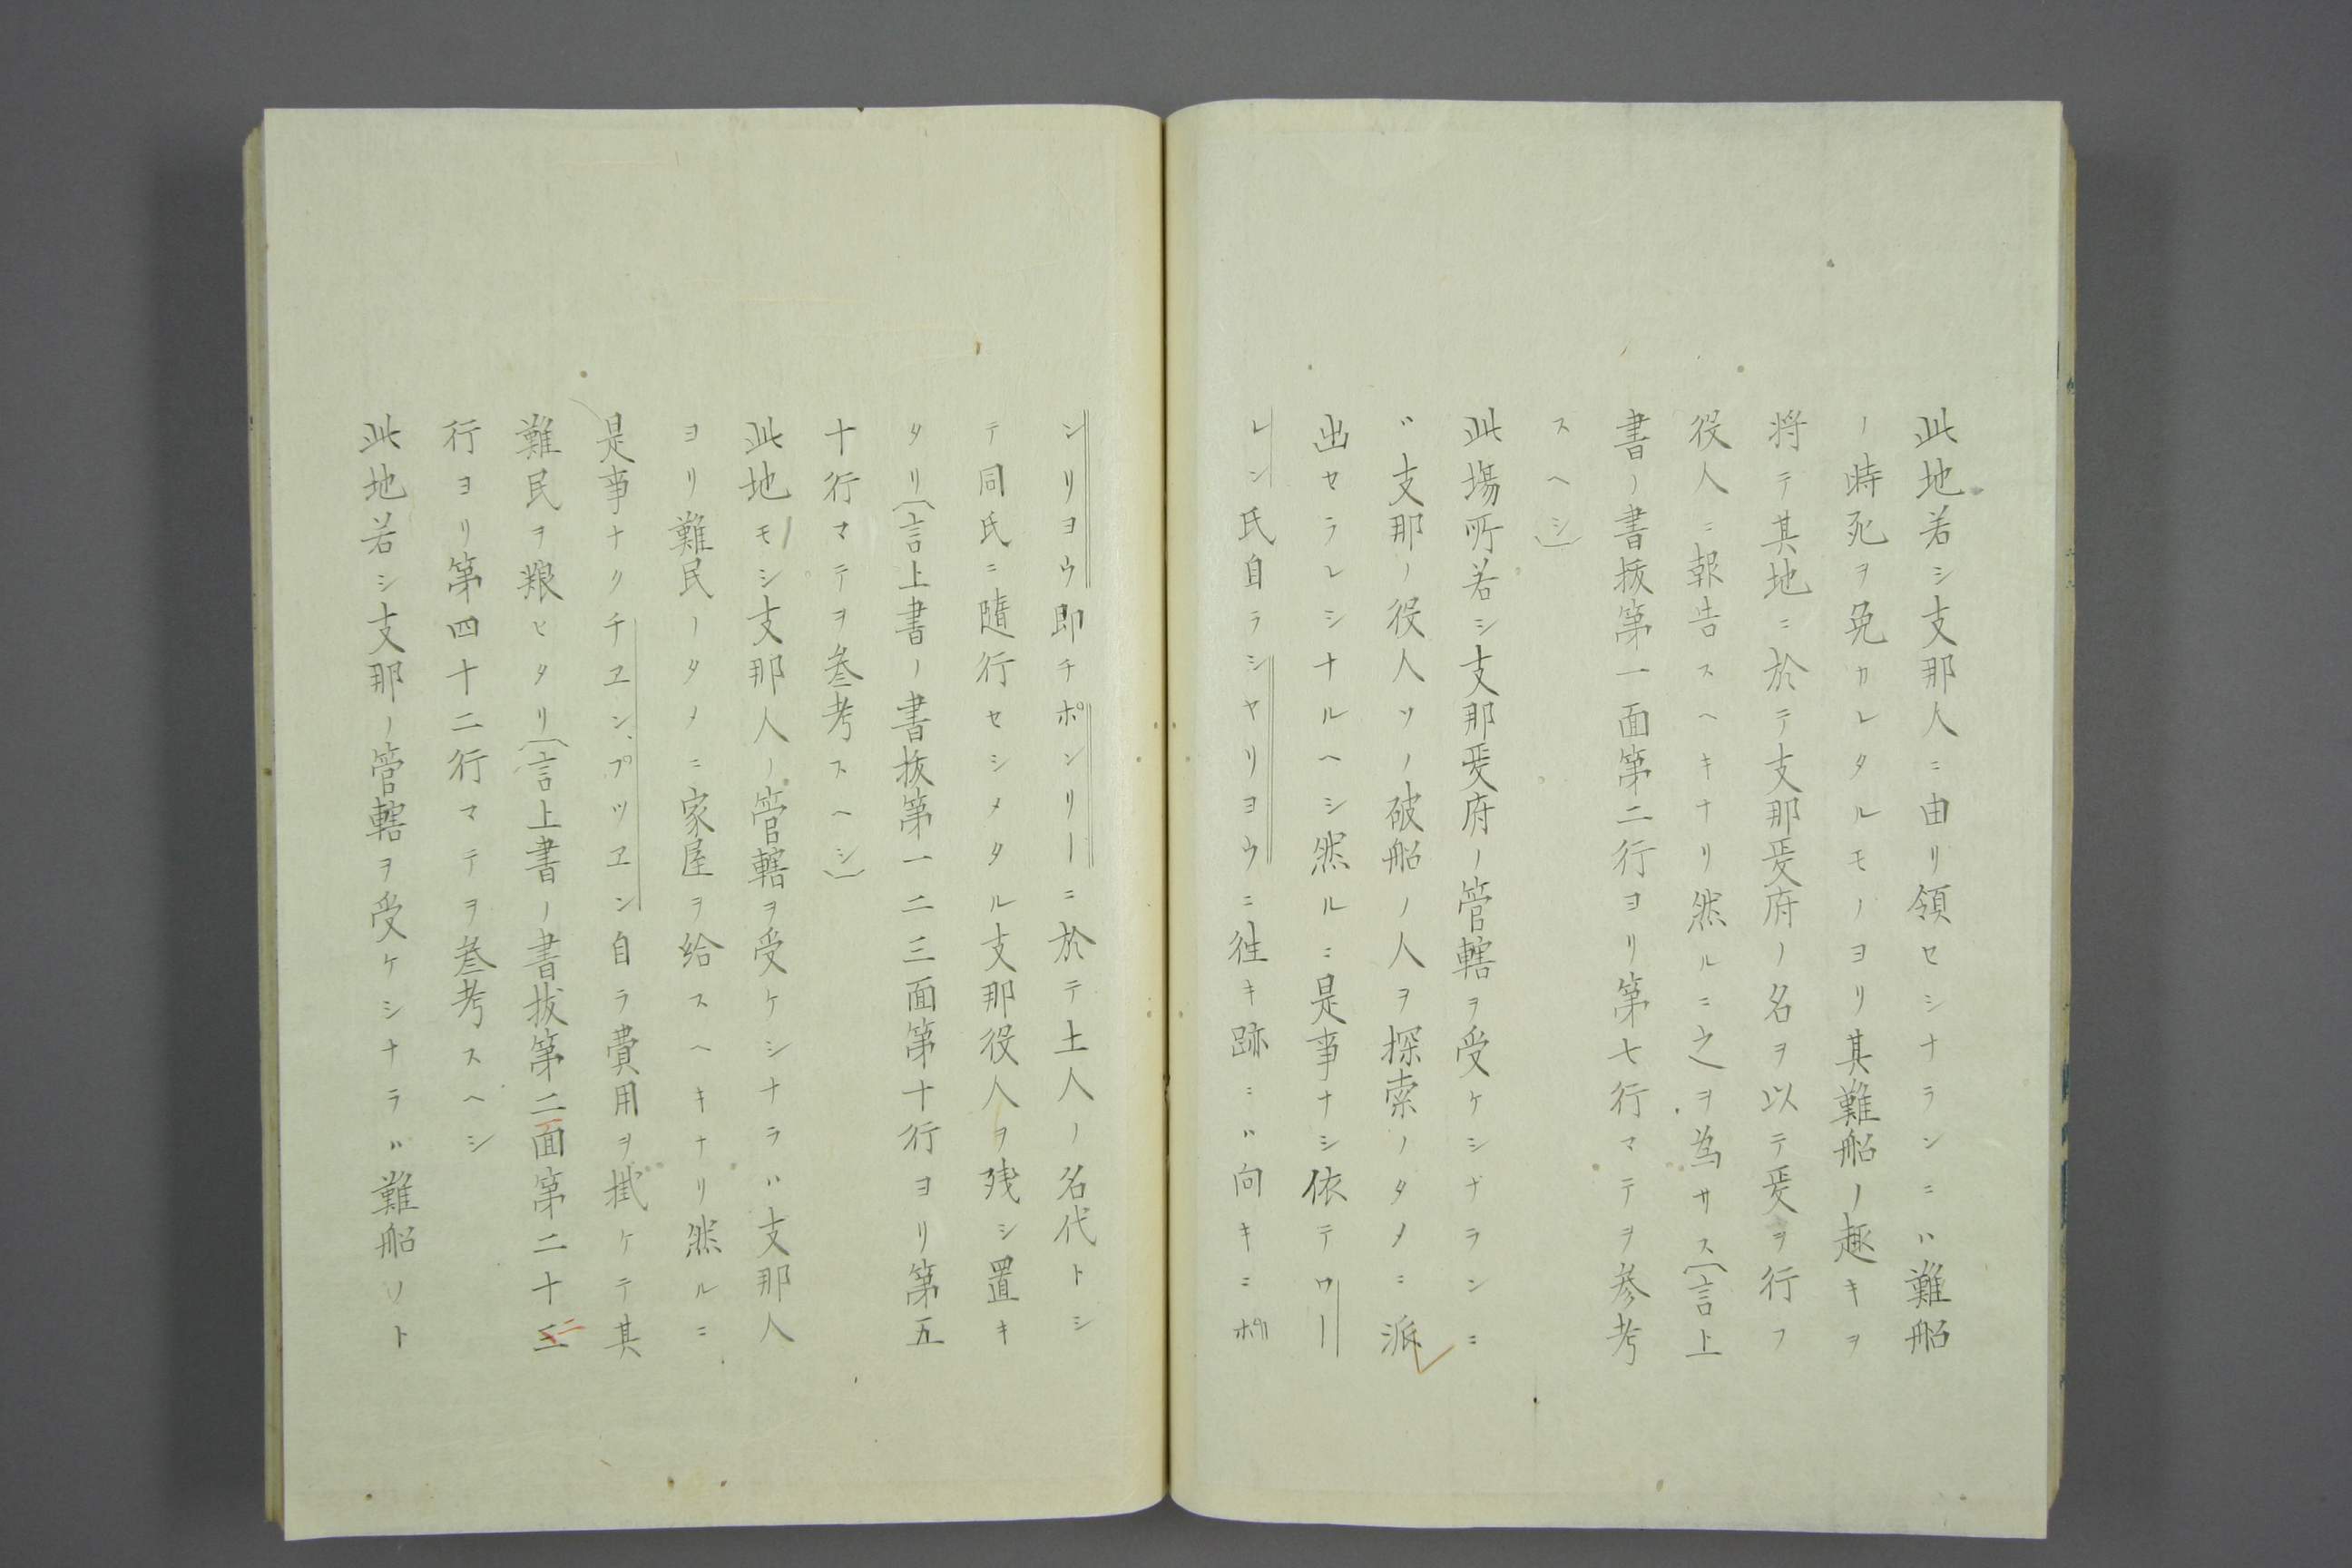 此地若シ支那人ニ由リ領セシナランニハ難船
ノ時死ヲ免カレタルモノヨリ其難船ノ趣キヲ
将テ其地ニ於テ支那政府ノ名ヲ以テ政ヲ行フ
役人ニ報告スヘキナリ然ルニ之ヲ為サス(言上
書ノ書抜第一面第二行ヨリ第七行マテヲ参考
スヘシ)
此場所若シ支那政府ノ管轄ヲ受ケシナランニ
ハ支那ノ役人ソノ破船ノ人ヲ探索ノタメニ派
出セラレシナルヘシ然ルニ是事ナシ依テワー
レン氏自ラシヤリヨウニ往キ跡ニハ向キニポ
ンリヨウ即チポンリーニ於テ土人ノ名代トシ
テ同氏ニ随行セシメタル支那役人ヲ残シ置キ
タリ(言上書ノ書抜第一二三面第十行ヨリ第五
十行マテヲ叅考スヘシ)
此地モシ支那人ノ管轄ヲ受ケシナラハ支那人
ヨリ難民ノタメニ家屋ヲ給スヘキナリ然ルニ
是事ナクチエン、プツエン自ラ費用ヲ掛ケテ其
難民ヲ粮ヒタリ(言上書ノ書抜第二面第二十三
行ヨリ第四十二行マテヲ叅考スヘシ
此地若シ支那ノ管轄ヲ受ケシナラハ難船ソト